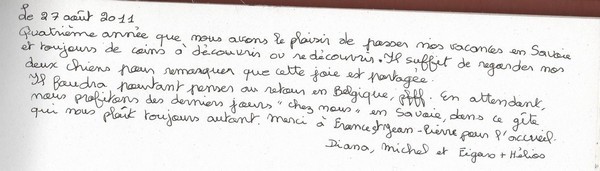 Le 27 août 2011
Quatrième année que nous avons le plaisir de passer nos vacances en Savoie
et toujours de coins à découvrir ou redécouvrir. Il suffit de regarder nos
deux chiens pour remarquer que cette joie est partagée.
Il faudra pourtant penser au retour en Belgique, pfff.. En attendant,
nous profitons des derniers jours "chez nous" en Savoie, dans ce gîte
qui nous plaît toujours autant. Merci à France et Jean-Pierre pour l'accueil.
Diana, Michel et Figaro + Hélios